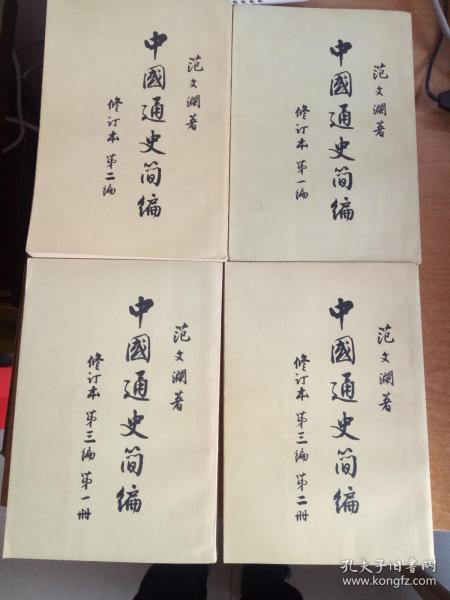 范文澜著
中國通史简编
修订本 第二编
范文澜著
中國通史简编
修订本 第一编
范文澜著
中國通史简编
修订本 第三编 第一册
范文澜著
中國通史简编
修订本 第三编 第二册
孔夫子旧书网
www.kongfz.com